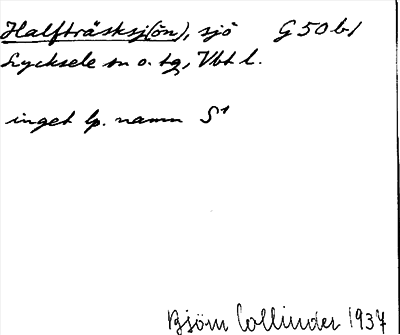 Halfträsksj(ön), sjö G 50 b1
Lycksele sn o. tg, Vbt l.
inget lp. namn S¹
Björn Collinder 1937